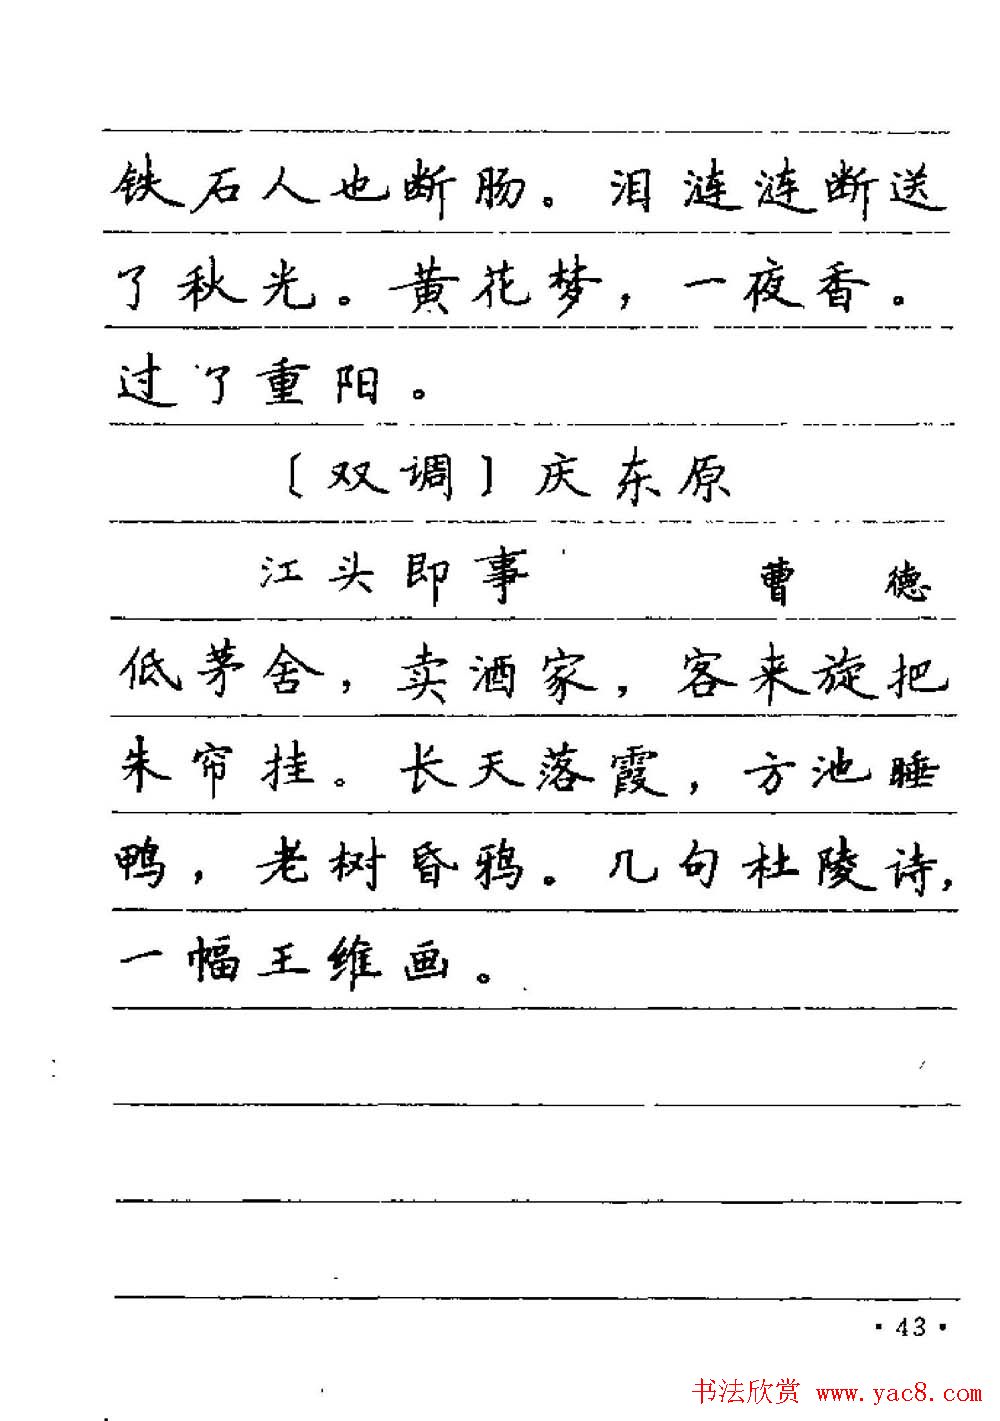 铁石人也断肠。泪涟涟断送
了秋光。黄花梦，一夜香。
过了重阳。
〔双调〕庆东原
江头即事 曹 德
低茅舍，卖酒家，客来旋把
朱帘挂。长天落霞，方池睡
鸭，老树昏鸦。几句杜陵诗，
一幅王维画。
·43·
书法欣赏 www.yac8.com